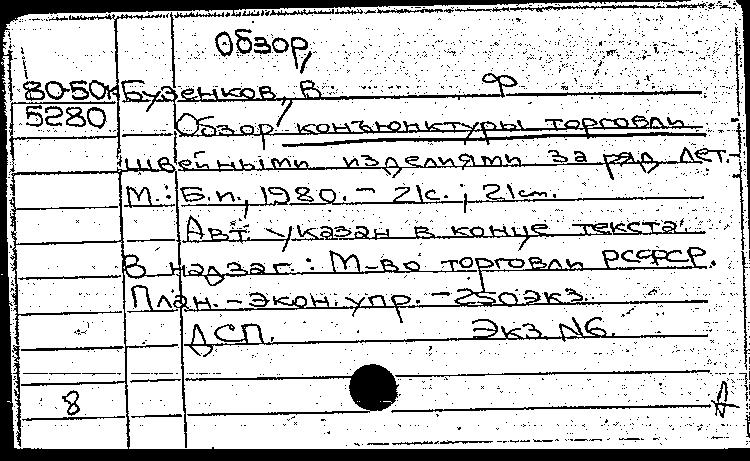 Обзор,
80-50к Бузенков, В. ф
5280 Обзор конъюнктуры торговли
швейными изделиями за ряд лет.-
М.: Б.и., 1980. - 21с.; 21см.
Авт. указан в конце текста.
В надзаг.: М-во торговли РСФСР.
План.-экон. упр. - 250экз.
ДСП. Экз. N6.
8 А